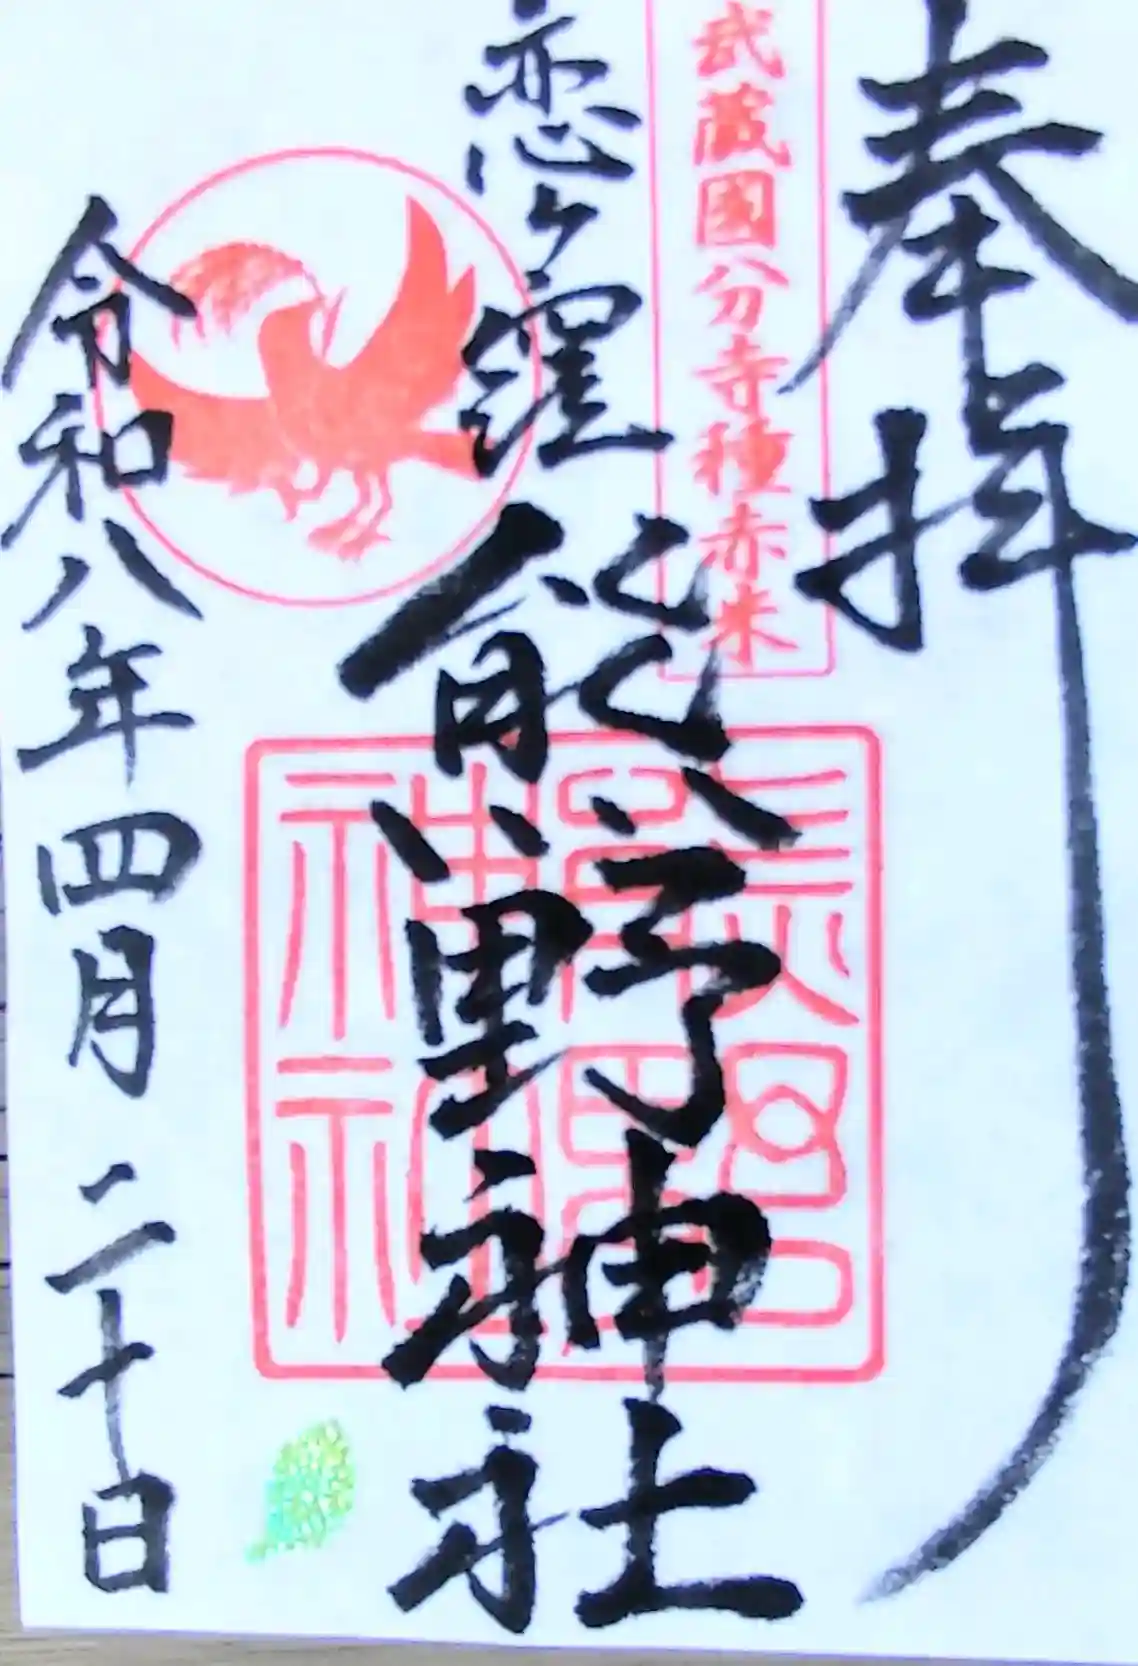 奉拝
武蔵國分寺種赤米
恋ヶ窪
熊野神社
令和八年四月二十日